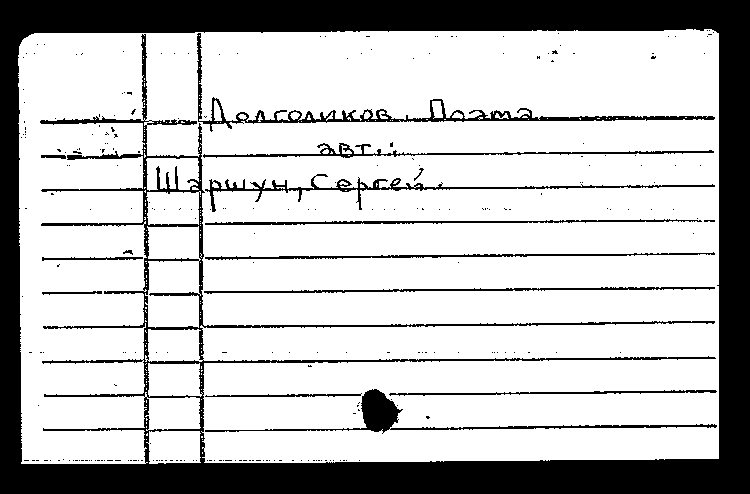 Долголиков. Поэта
авт.:
Шаршун, Сергей.